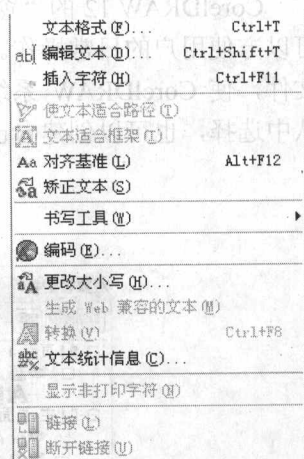 文本格式(F)... Ctrl+T
ab 编辑文本(D)... Ctrl+Shift+T
插入字符(H) Ctrl+F11
使文本适合路径(T)
文本适合框架(T)
Aa 对齐基准(L) Alt+F12
矫正文本(S)
书写工具(W)
编码(E)...
更改大小写(H)...
生成 Web 兼容的文本(M)
转换(V) Ctrl+F8
文本统计信息(C)...
显示非打印字符(N)
链接(L)
断开链接(U)